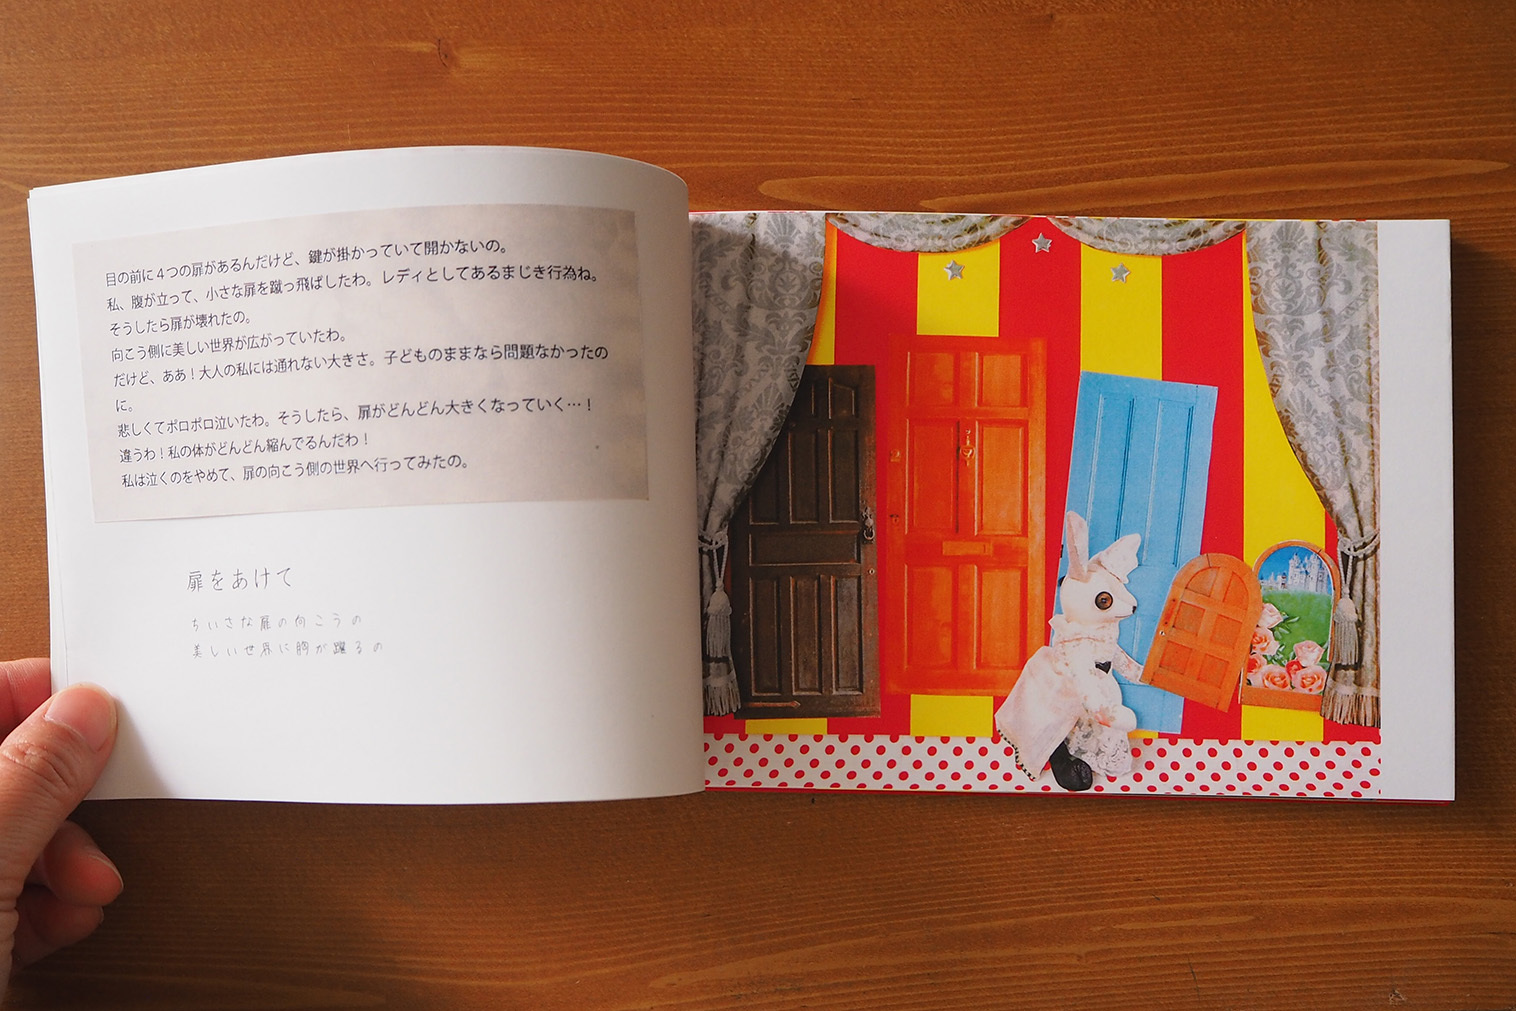 目の前に４つの扉があるんだけど、鍵が掛かっていて開かないの。
私、腹が立って、小さな扉を蹴っ飛ばしたわ。レディとしてあるまじき行為ね。
そうしたら扉が壊れたの。
向こう側に美しい世界が広がっていたわ。
だけど、ああ！大人の私には通れない大きさ。子どものままなら問題なかったの
に。
悲しくてボロボロ泣いたわ。そうしたら、扉がどんどん大きくなっていく…！
違うわ！私の体がどんどん縮んでるんだわ！
私は泣くのをやめて、扉の向こう側の世界へ行ってみたの。
扉をあけて
ちいさな扉の向こうの
美しい世界に胸が躍るの